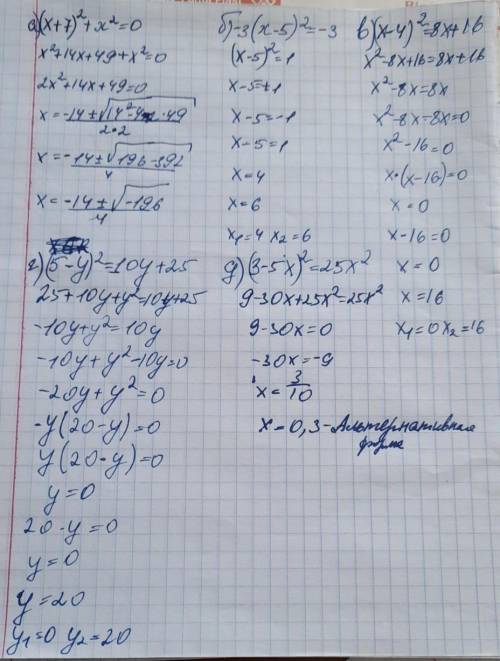 а)(x+7)²+x²=0
x²+14x+49+x²=0
2x²+14x+49=0
x=-14±√14²-4·2·49/2·2
x=-14±√196-392/4
x=-14±√-196/4
б)-3(x-5)²=-3
(x-5)²=1
x-5=±1
x-5=-1
x-5=1
x=4
x=6
x₁=4 x₂=6
в)(x-4)²=8x+16
x²-8x+16=8x+16
x²-8x=8x
x²-8x-8x=0
x²-16=0
x·(x-16)=0
x=0
x-16=0
x=0
x=16
x₁=0 x₂=16
г)(5-y)²=10y+25
25+10y+y²=10y+25
-10y+y²=10y
-10y+y²-10y=0
-20y+y²=0
-y(20-y)=0
y(20-y)=0
y=0
20-y=0
y=0
y=20
y₁=0 y₂=20
д)(3-5x)²=25x²
9-30x+25x²=25x²
9-30x=0
-30x=-9
x=3/10
x=0,3-Альтернативная
форма